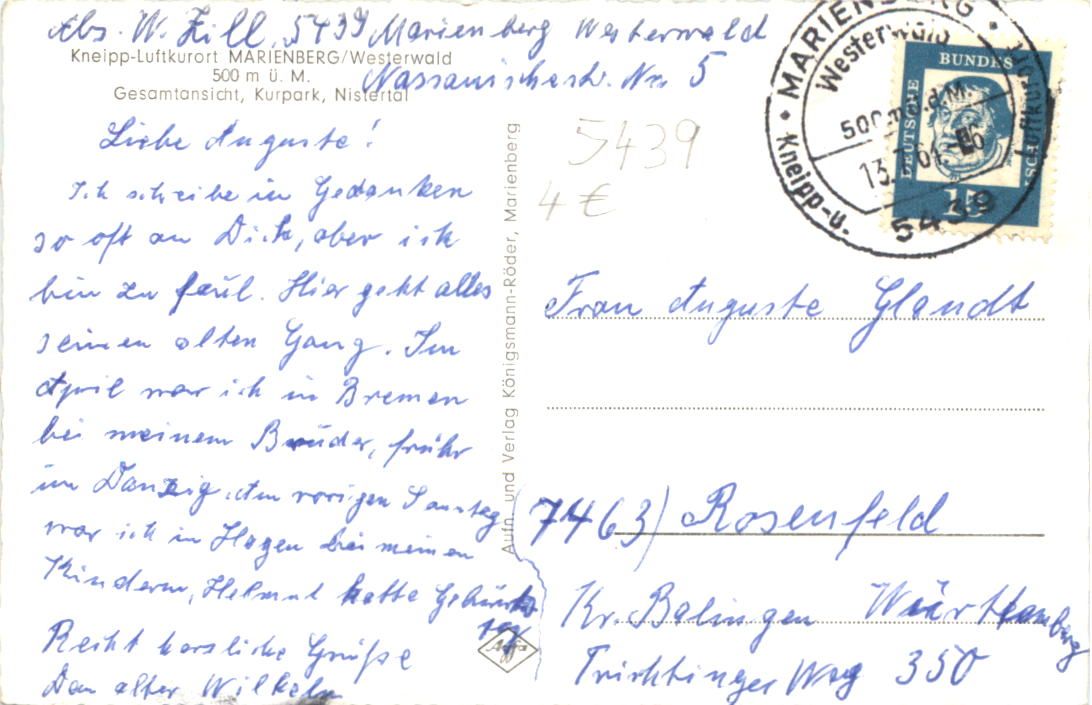 Abs. W. Zill, 5439 Marienberg Westerwald
Kneipp-Luftkurort MARIENBERG/Westerwald
500 m ü. M.
Nassauischestr. No 5
Gesamtansicht, Kurpark, Nistertal
Liebe Auguste!
Ich schreibe in Gedanken
so oft an Dich, aber ich
bin zu faul. Hier geht alles
seinen alten Gang. Im
April war ich in Bremen
bei meinem Bruder, früher
in Danzig. Am vorigen Sonntag
war ich in Hagen bei meinen
Kindern, Helmut hatte Geburts
tag
Recht herzliche Grüße
Dein alter Wilhelm
Aufn. und Verlag Königsmann-Röder, Marienberg
Agfa
5439
4 €
MARIENBERG
Westerwald
500 m ü.d.M.
13.
64
Kneipp-u.
Luftkurort
5439
DEUTSCHE
BUNDES
POST
15
Frau Auguste Glandt
7463) Rosenfeld
Kr. Balingen Württemberg
Trichtinger Weg 350